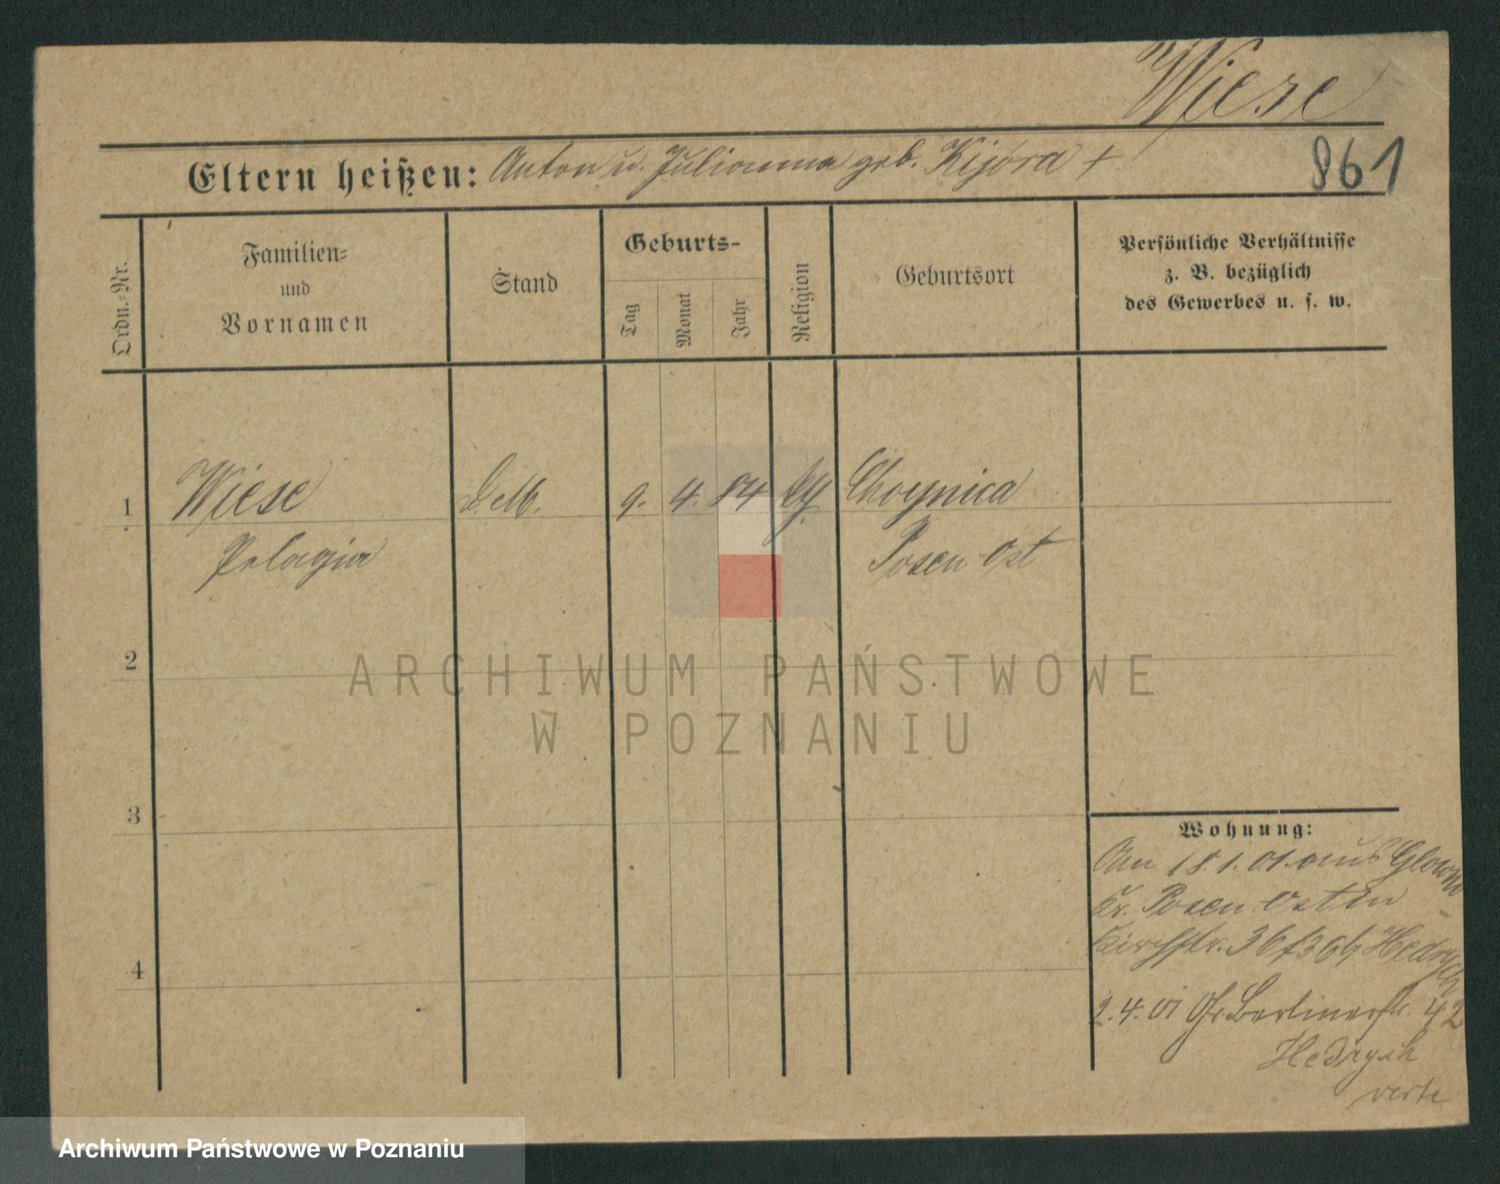 Wiese
Eltern heißen: Anton u. Julianna geb. Kijora +
861
Ordn.-Nr.
Familien-
und
Vornamen
Stand
Geburts-
Tag
Monat
Jahr
Religion
Geburtsort
Persönliche Verhältnisse
z. B. bezüglich
des Gewerbes u. s. w.
1 Wiese 9. 4. 84 Choynica
Pelagia Posen Ost
2
3
4
Wohnung:
Am 18.1.01. aus Glowno
Kr. Posen Ost in
Kirchstr. 36/36b Hedrych
2.4.01 Gr. Berlinerstr. 42
Hedrych
verte
ARCHIWUM PAŃSTWOWE
W POZNANIU
Archiwum Państwowe w Poznaniu